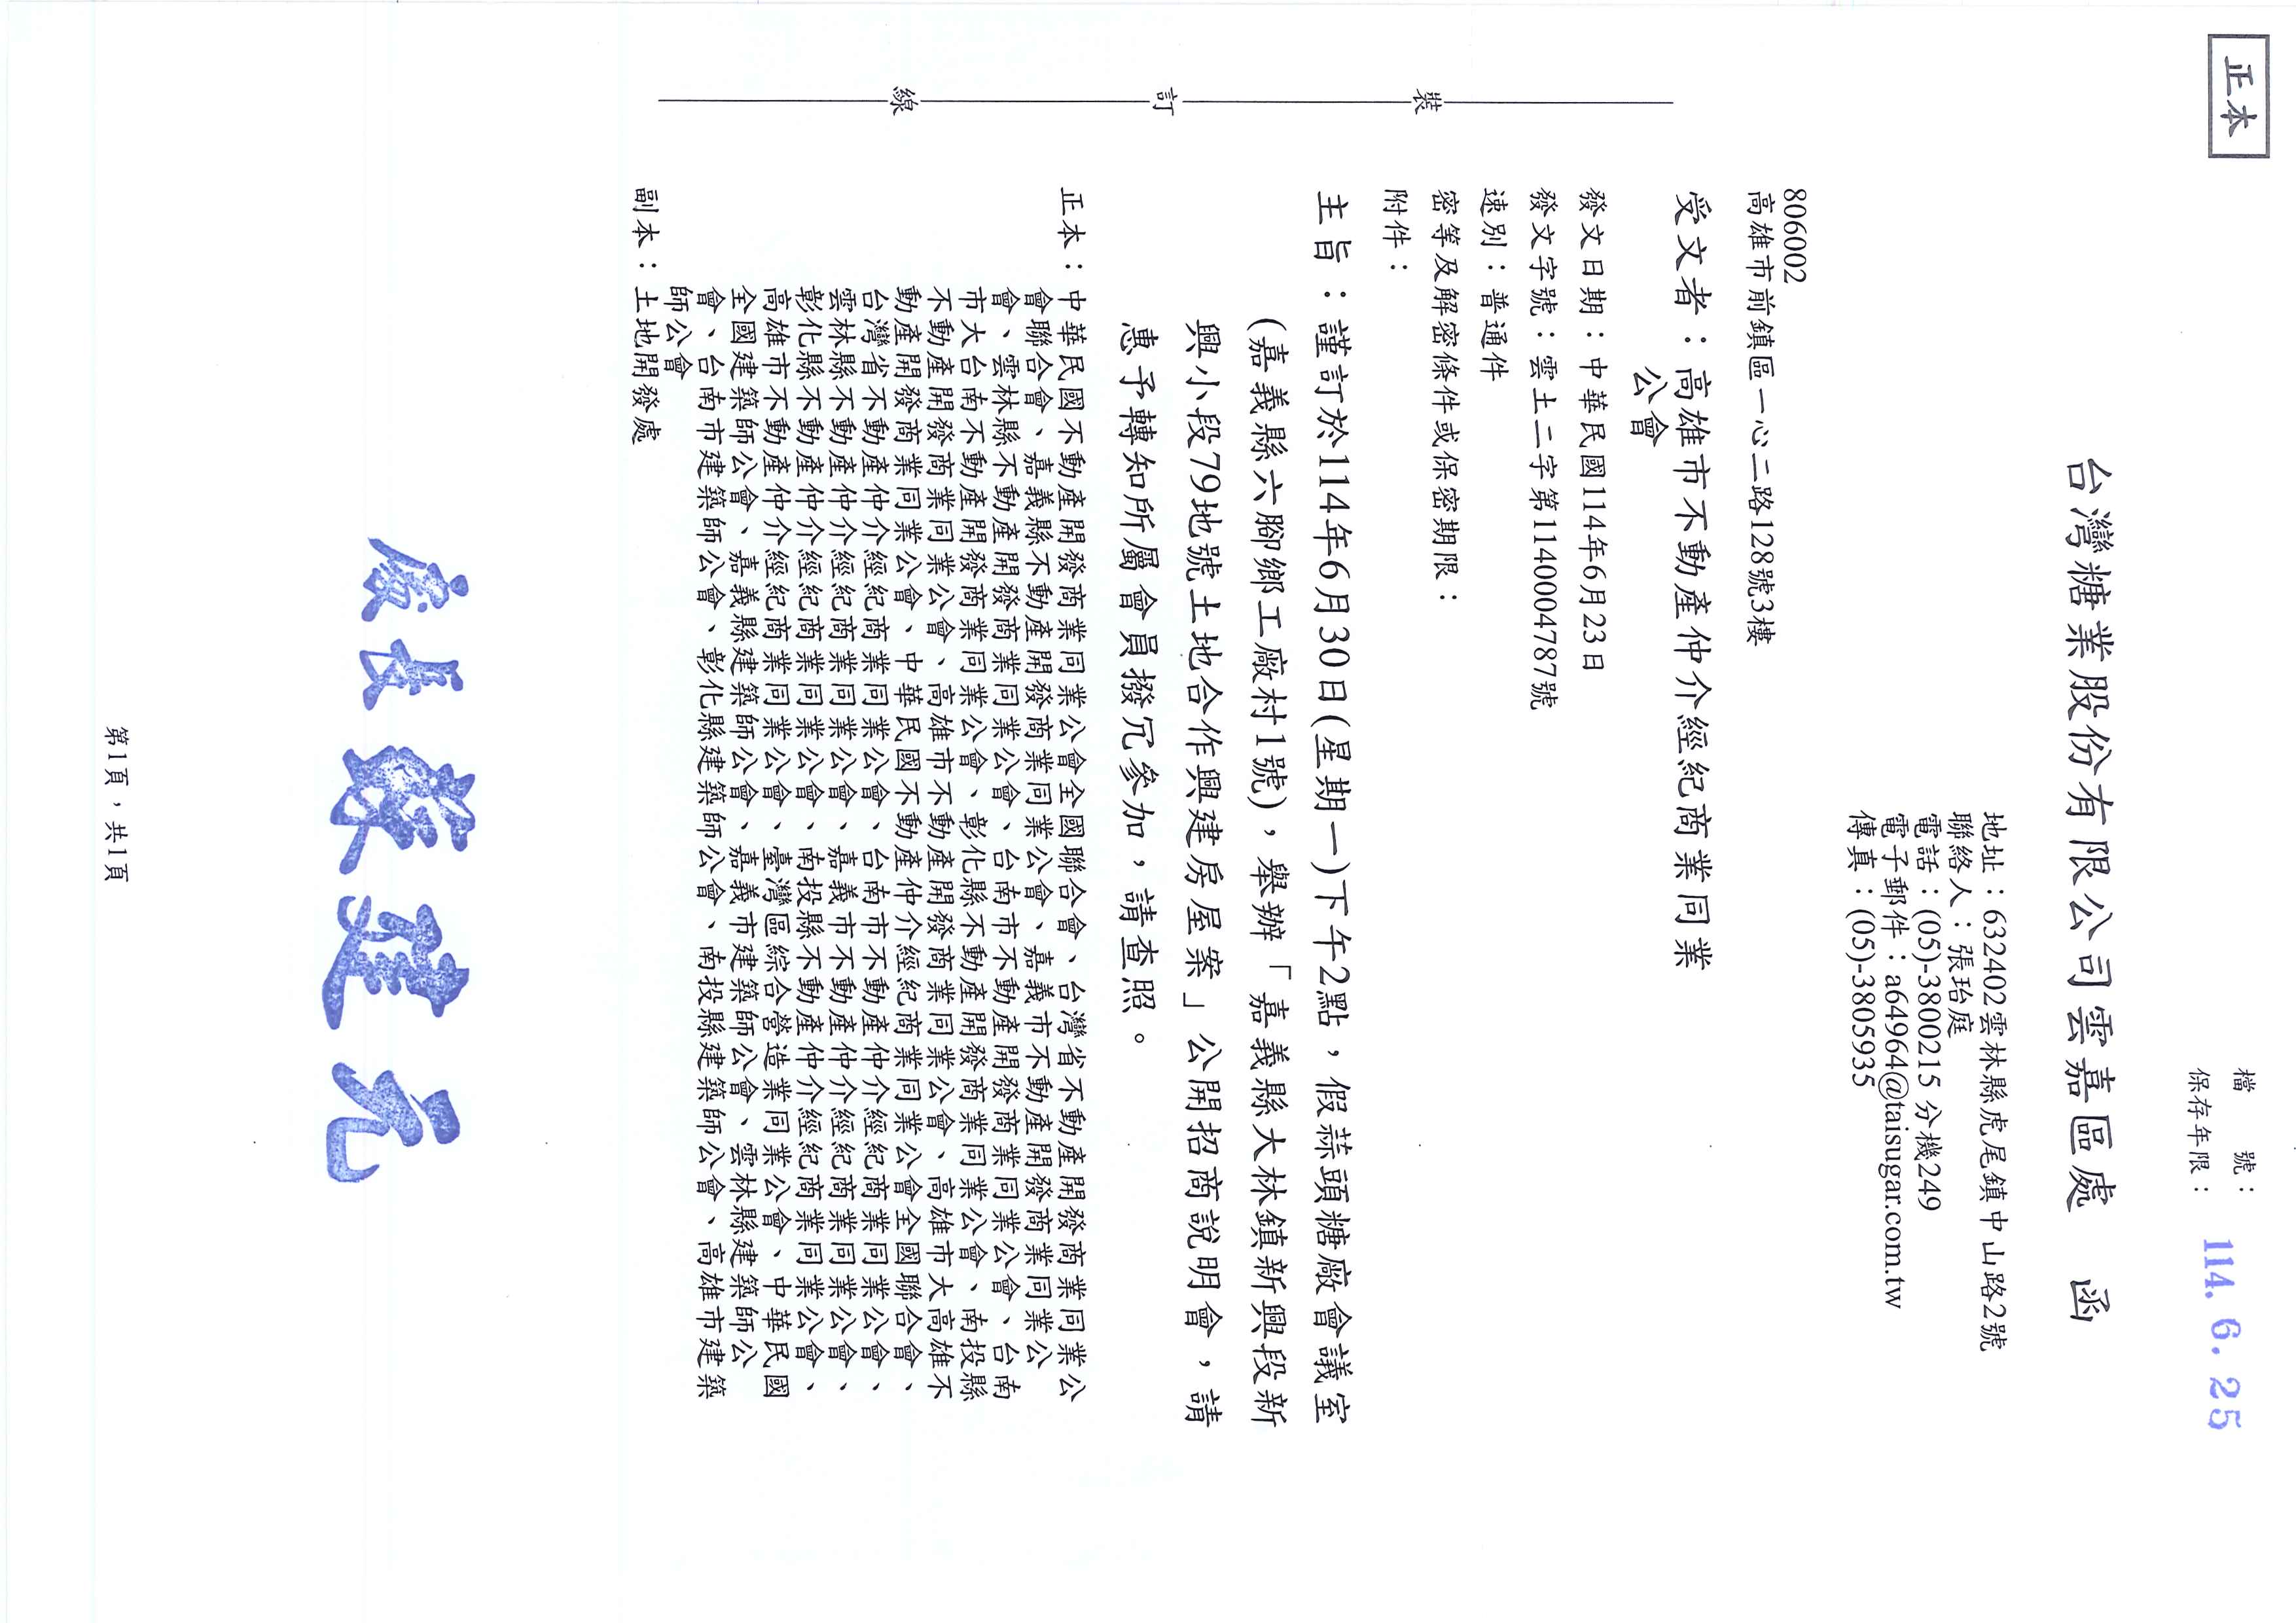 正本
檔　　號：
保存年限：
114. 6. 25
台灣糖業股份有限公司雲嘉區處　函
地址：632402雲林縣虎尾鎮中山路2號
聯絡人：張珆庭
電話：(05)-3800215 分機249
電子郵件：a64964@taisugar.com.tw
傳真：(05)-3805935
806002
高雄市前鎮區一心二路128號3樓
受文者：高雄市不動產仲介經紀商業同業
公會
發文日期：中華民國114年6月23日
發文字號：雲土二字第1140004787號
速別：普通件
密等及解密條件或保密期限：
附件：
主旨：謹訂於114年6月30日(星期一)下午2點，假蒜頭糖廠會議室
(嘉義縣六腳鄉工廠村1號)，舉辦「嘉義縣大林鎮新興段新
興小段79地號土地合作興建房屋案」公開招商說明會，請
惠予轉知所屬會員撥冗參加，請查照。
正本：中華民國不動產開發商業同業公會全國聯合會、台灣省不動產開發商業同業公
會聯合會、嘉義縣不動產開發商業同業公會、嘉義市不動產開發商業同業公
會、雲林縣不動產開發商業同業公會、台南市不動產開發商業同業公會、台南
市大台南不動產開發商業同業公會、彰化縣不動產開發商業同業公會、南投縣
不動產開發商業同業公會、高雄市不動產開發商業同業公會、高雄市大高雄不
動產開發商業同業公會、中華民國不動產仲介經紀商業同業公會全國聯合會、
台灣省不動產仲介經紀商業同業公會、台南市不動產仲介經紀商業同業公會、
雲林縣不動產仲介經紀商業同業公會、嘉義市不動產仲介經紀商業同業公會、
彰化縣不動產仲介經紀商業同業公會、南投縣不動產仲介經紀商業同業公會、
高雄市不動產仲介經紀商業同業公會、臺灣區綜合營造業同業公會、中華民國
全國建築師公會、嘉義縣建築師公會、嘉義市建築師公會、雲林縣建築師公
會、台南市建築師公會、彰化縣建築師公會、南投縣建築師公會、高雄市建築
師公會
副本：土地開發處
裝
訂
線
處長蔡建元
第1頁，共1頁